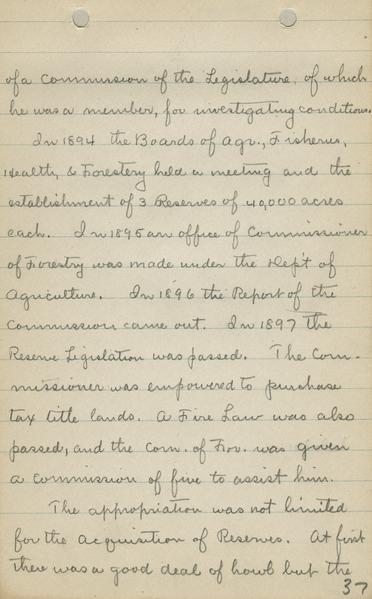 of a Commission of the Legislature, of which
he was a member, for investigating conditions.
In 1894 the Boards of Agr., Fisheries,
Health, & Forestery held a meeting and the
establishment of 3 Reserves of 40,000 acres
each. In 1895 an office of Commissioner
of Forestry was made under the Dep't of
Agriculture. In 1896 the Report of the
Commission came out. In 1897 the
Reserve Legislation was passed. The Com-
missioner was empowered to purchase
tax title lands. A Fire Law was also
passed, and the Com. of For. was given
a commission of five to assist him.
The appropriation was not limited
for the acquisition of Reserves. At first
there was a good deal of howl but the
37